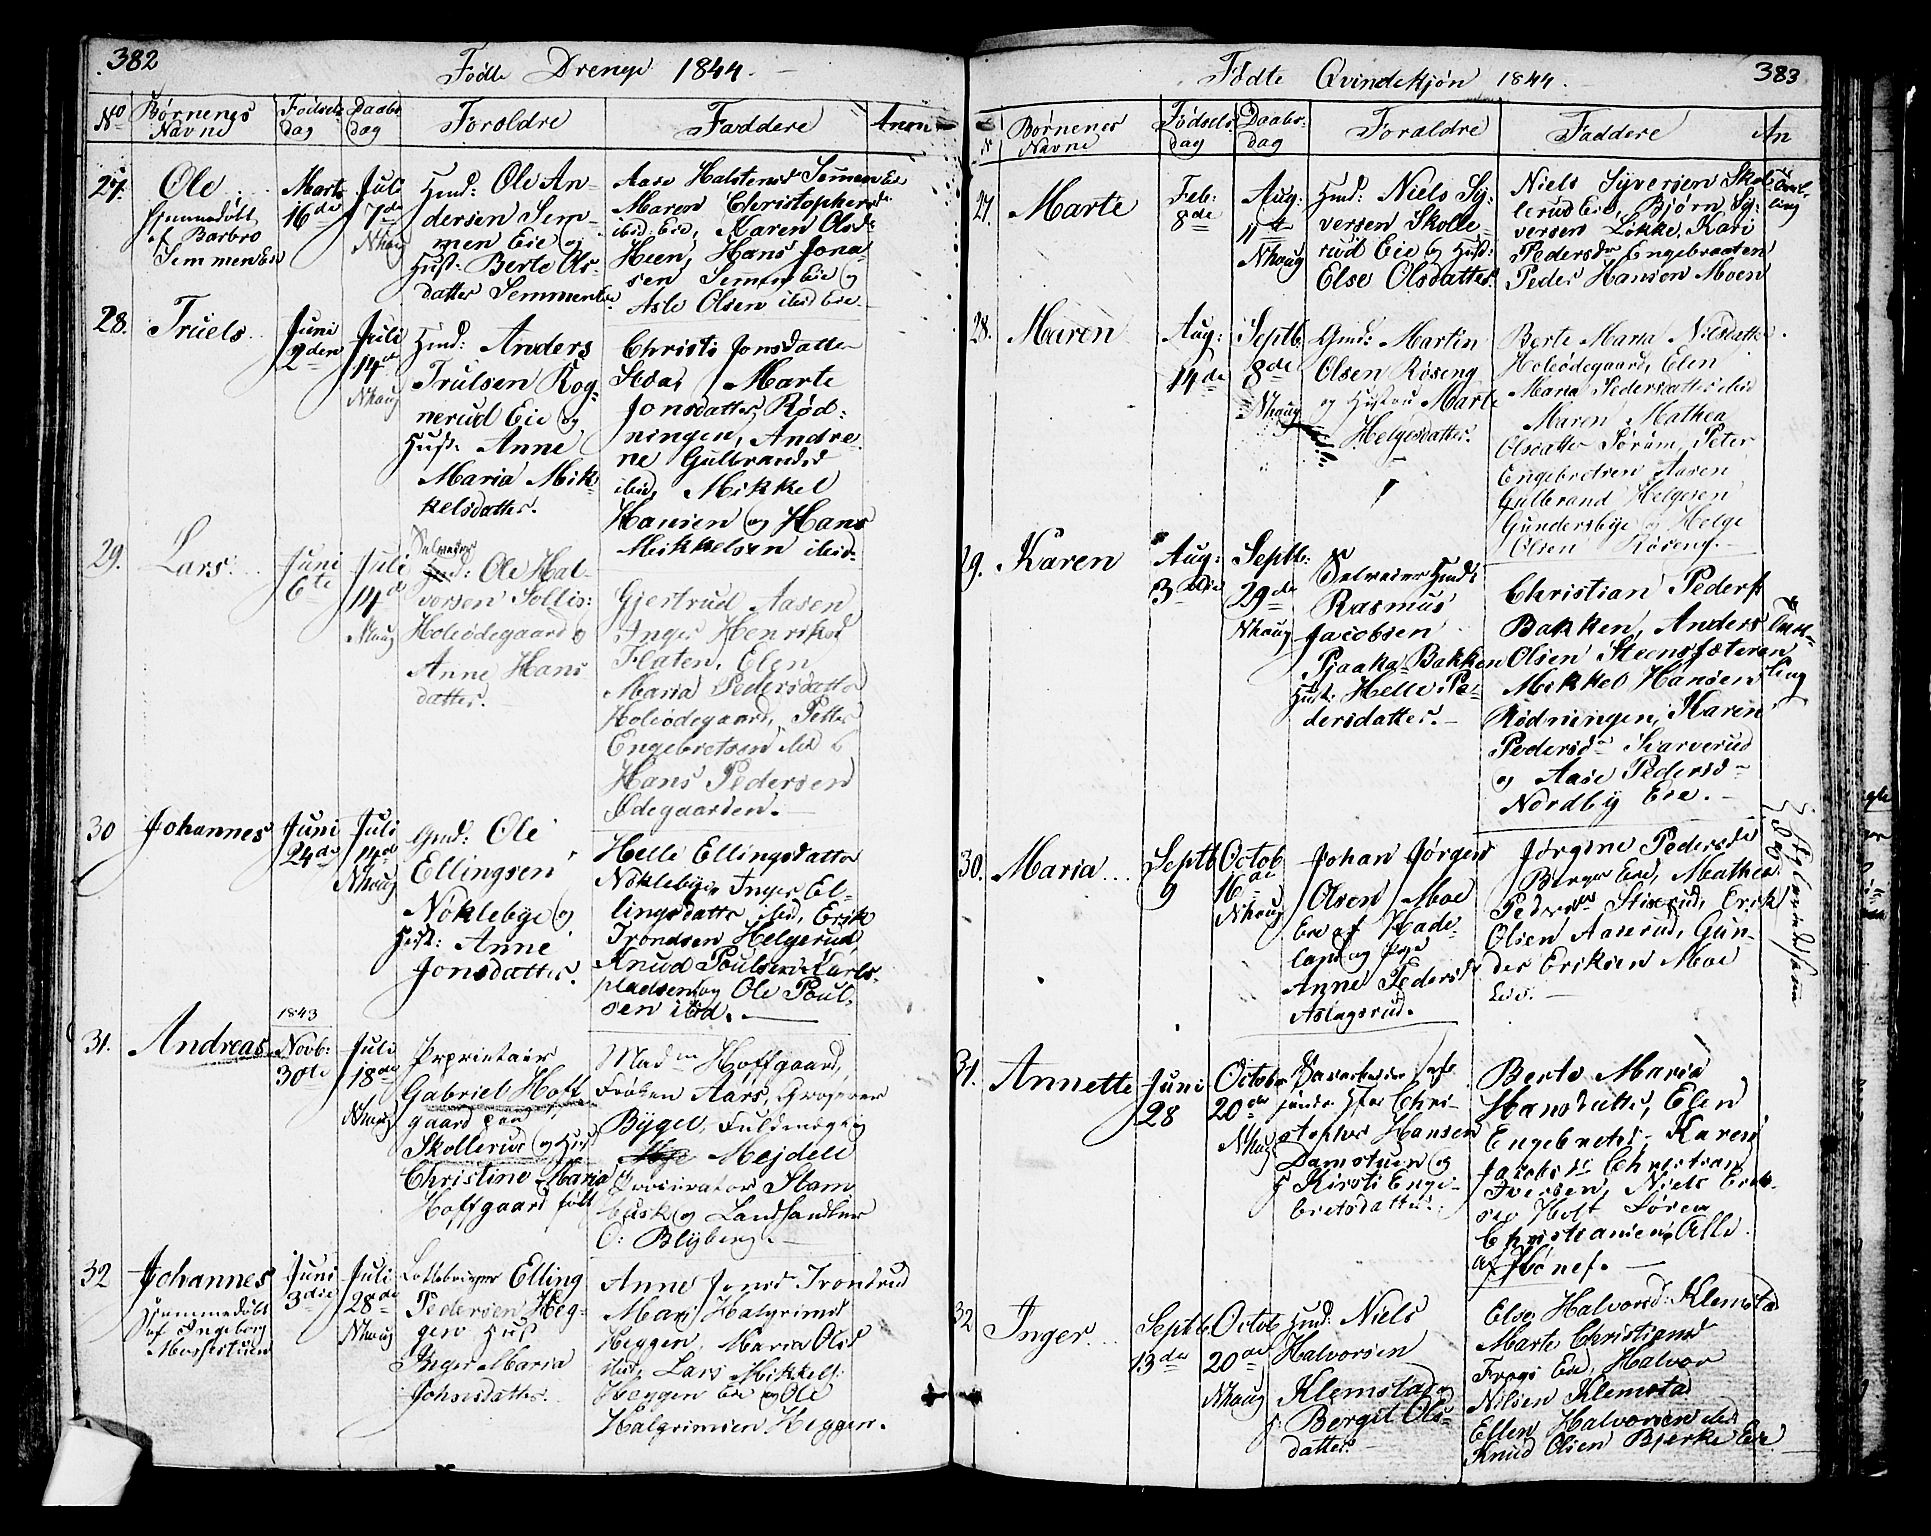 382
Fødte Drenge 1844.
No Børnenes Navne Fødsels dag Daabs dag Foroldre Faddere Anm
27. Ole
hjemmedøbt
af Barbro
Semmen Eie
Marts
16de
Juli
7de
Nhoug
Hmd: Ole An-
dersen Sem-
men Eie og
Hust: Berte Ols-
datter Semmen Eie
Aase Halstensd Semmen Eie
Maren Christophersdr
ibid Eie, Karen Olsd:
Heen, Hans Jona-
sen Semmen Eie og
Asle Olsen ibid Eie
28. Truels
Juni
2den
Juli
14de
Nhoug
Hmd: Anders
Trulsen Rog-
nerud Eie og
Hust: Anne
Maria Mik-
kelsdatter.
Christi Jonsdatter
Marte
Jonsdatter Rød-
ningen, Andre-
ne Gulbrandsd
ibid, Mikkel
Hansen og Hans
Mikkelsen ibid.
29. Lars
Juni
6te
Juli
14de
Nhoug
Selveier
Hmd: Ole Hal-
vorsen Sollis:
Holeødegaard og
Anne Hans
datter.
Gjertrud Aasen
Inger Henriksd
Flaten, Elen
Maria Pedersdatter
Holeødegaard, Petter
Engebretsen ibid &
Hans Pedersen
Ødegaarden.
30 Johannes
Juni
24de
Juli
14de
Nhoug
Gmd: Ole
Ellingsen
Noklebye og
Hust: Anne
Jonsdatter.
Helle Ellingsdatter
Noklebye, Inger El-
lingsdatter ibid, Erik
Trondsen Helgerud,
Knud Poulsen Karls-
pladsen og Ole Poul-
sen ibid.
31. Andreas
1843
Novb:
30te
Juli
18de
Nhoug
Proprietair
Gabriel Hoff-
gaard paa
Skollerud og Hus
Christine Maria
Hoffgaard født
Madm Hoffgaard,
Frøken Aars, Grosserer
Bygel, Fuldmægtig
Mejdell
Procurator Stam
busk og Landhandler
O: Blyberg.
32 Johannes
hjemmedøbt
af Ingeborg
Juni
3die
Juli
28de
Nhoug
Elling
Pedersen Heg-
gen Hus
Inger Maria
Johnsdatter.
Anne Jonsd Trondrud
Mari Halgrimsd
Heggen, Maria Olsd
ibid, Lars Mikkels:
Heggen Eie og Ole
Halgrimsen Heggen.
383
Fødte Qvindekjøn 1844.
N Børnenes Navne Fødsels dag Daabs- dag Foraldre Faddere An
27. Marte
Feb:
8de
Aug:
11te
Nhoug
Hmd: Niels Sy-
versen Skolle-
rud Eie og Hust:
Else Olsdatter
Niels Syversen Skol-
lerud Eie, Bjørn Sy-
versen Løkke, Kari
Pedersdr Engebraaten
Peder Hansen Moen
28. Maren
Aug:
14de
Septb.
8de
Nhoug
Gmd: Martin
Olsen Røseng
og Hustru Marte
Helgesdatter.
Berte Maria Nilsdatter
Holeødegaard, Elen
Maria Pedersdatter ibid
Maren Mathea
Olsdatter Sørum, Peter
Engebretsen Aasen
Gulbrand Helgesen
Gundersbye og Helge
Olsen Røseng.
29. Karen
Aug:
3die
Septb:
29de
Nhoug
Selveier Hmd:
Rasmus
Jacobsen
Pjaaka-Bakken
Hust: Helle Pe-
dersdatter.
Christian Peders:
Bakken, Anders
Olsen Steensfæteren
Mikkel Hansen
Rødningen, Karen
Pedersdr Svarverud
og Aase Pedersdr
Nordby Eie.
30. Maria
Septb
9
Octob
16de
Nhoug
Johan Jørgen
Olsen Moe
Eie af Hade-
land og Pige
Anne Pedersdr
Aslagsrud.
Jørgine Pedersdr
Berger Eie, Mathea
Pedersdr Stixrud, Erik
Olsen Aaserud, Gun-
der Eriksen Moe
Eie.
31. Annette
Juni
28
October
20de
Nhoug
Chri-
stopher Hansen
Damstuen og
Kirsti Enge-
bretsdatter.
Berte Maria
Hansdatter, Elen
Engebretsd Karen
Jacobsdr Christian
Iversen, Niels Erik-
sen Hoft Søren
Christiansen Alle
af Hønef.
32 Inger
Septb
13de
Octob
20de
Nhoug
Hmd: Niels
Halvorsen
Klemstad og
Bergit Ols-
datter.
Else Halvorsd: Klemstad
Marte Christiansd
Frogs Eie, Halvor
Nilsen Klemstad
Ellen Halvorsen ibid
Knud Olsen Bjerke Eie